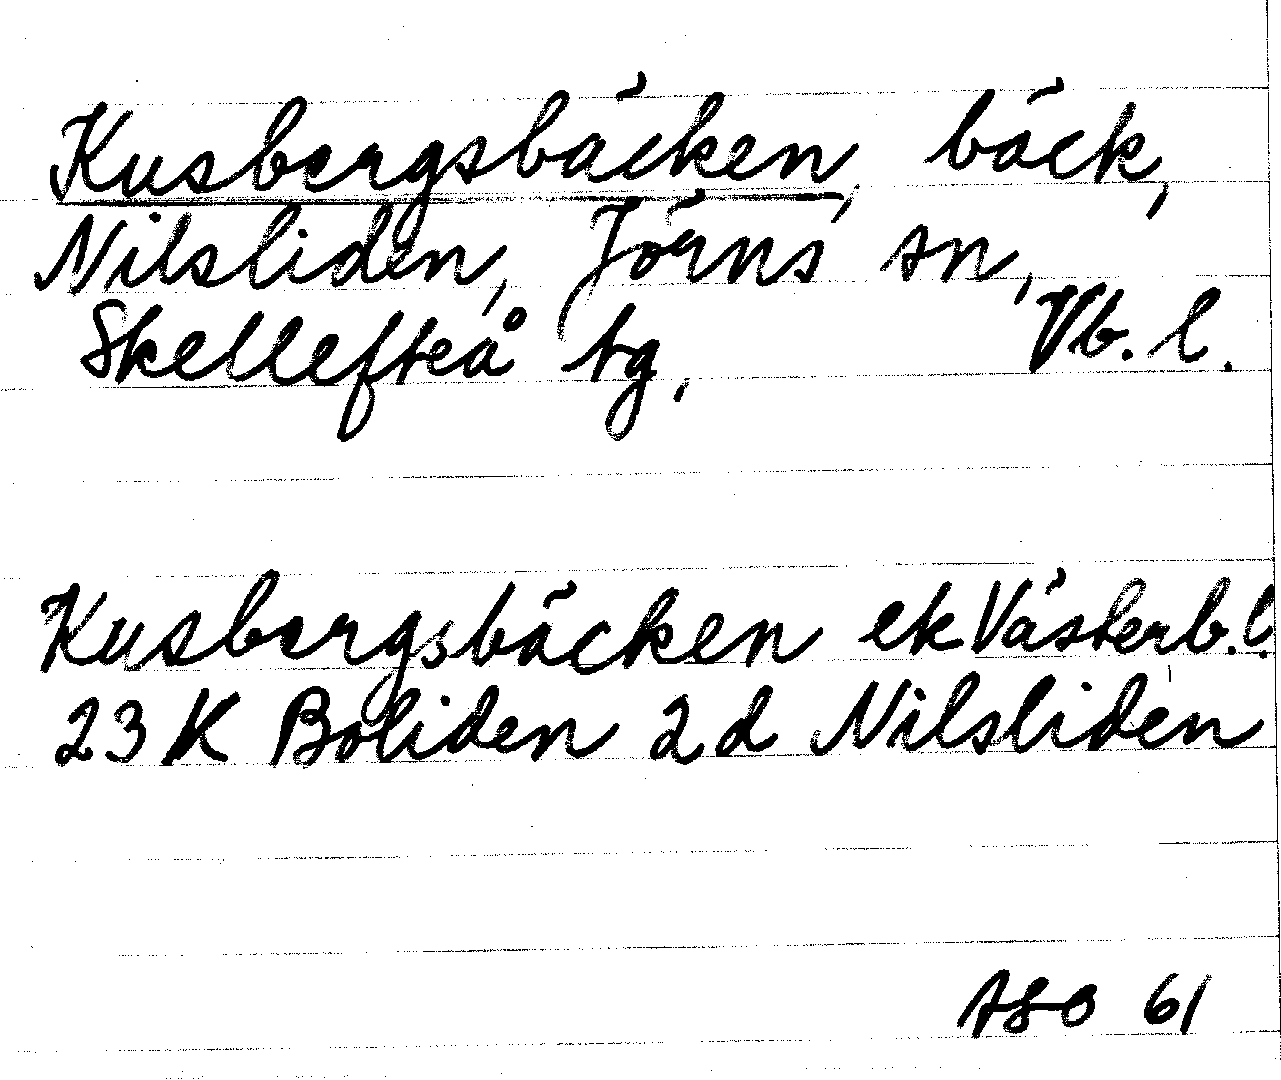 Kusbergsbäcken, bäck,
Nilsliden, Jörns sn,
Skellefteå tg, Vb. l.
Kusbergsbäcken ek Västerb. l.
23 K Boliden 2 d Nilsliden
ASB 61